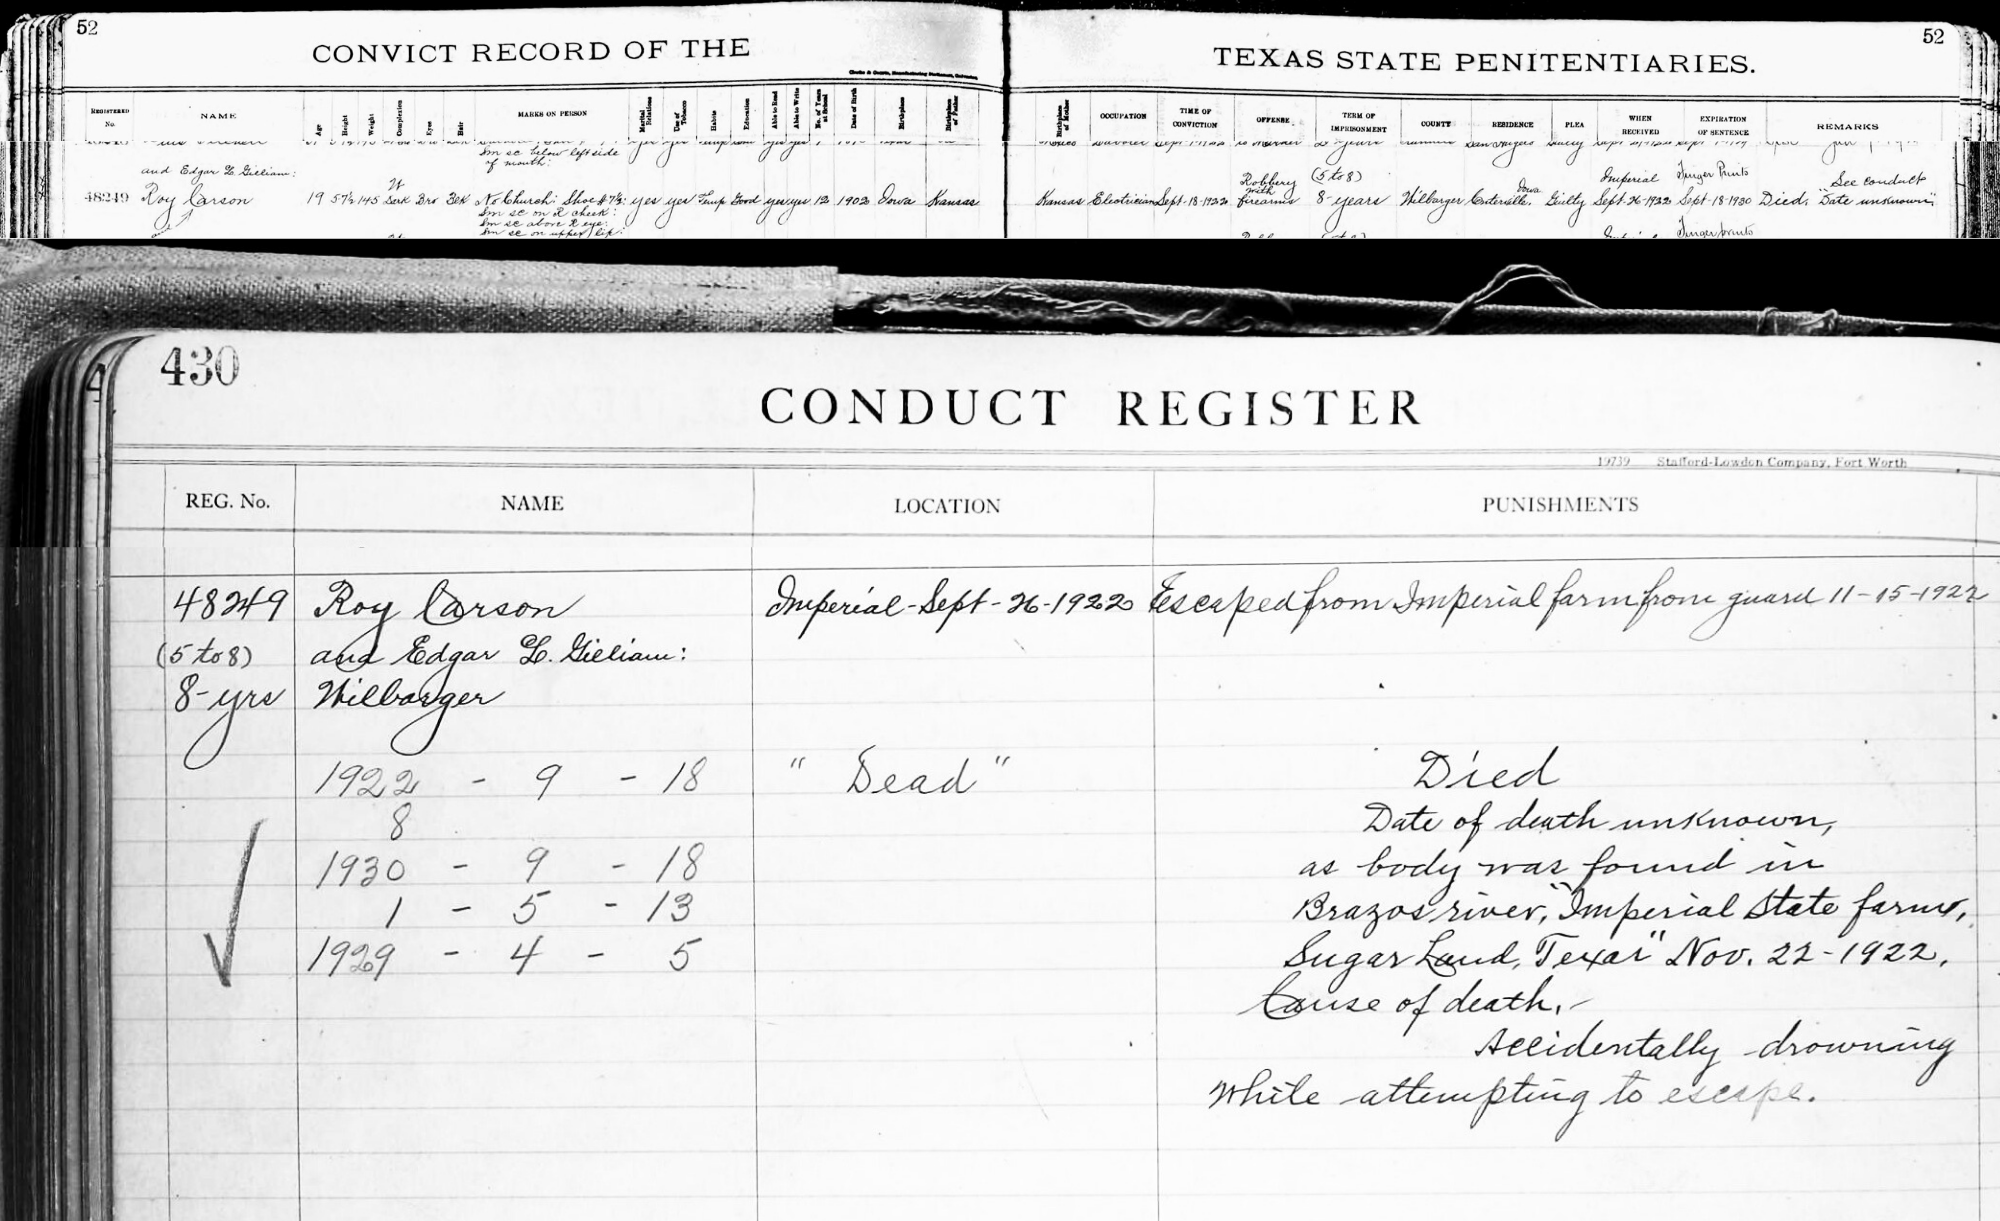 52
CONVICT RECORD OF THE
TEXAS STATE PENITENTIARIES.
52
REGISTERED No. NAME Age Height Weight Complexion Eyes Hair MARKS ON PERSON Marital Relations Use of Tobacco Habits Education Able to Read Able to Write No. of Years at School Date of Birth Birthplace Birthplace of Father Birthplace of Mother OCCUPATION TIME OF CONVICTION OFFENSE TERM OF IMPRISONMENT COUNTY RESIDENCE PLEA WHEN RECEIVED EXPIRATION OF SENTENCE REMARKS
Sm sc below left side
of mouth:
and Edgar L. Gilliam: (5 to 8) Imperial Finger Prints See conduct
48249 Roy Carson 19 5 7½ 145 Dark Bro Blk No Church: Shoe #7½: yes yes Temp Good yes yes 12 1902 Iowa Kansas Kansas Electrician Sept-18-1922 Robbery with firearms 8-years Wilbarger Centerville, Iowa Guilty Sept-26-1922 Sept-18-1930 Died, "Date unknown"
Sm sc on R cheek:
Sm sc above R eye:
Sm sc on upper lip:
Finger prints
430
CONDUCT REGISTER
19739 Stafford-Lowdon Company, Fort Worth
REG. No. NAME LOCATION PUNISHMENTS
48249 Roy Carson Imperial-Sept-26-1922 Escaped from Imperial farm from guard 11-15-1922
(5 to 8) and Edgar L. Gilliam:
8-yrs Wilbarger
1922 - 9 - 18 " Dead " Died
8 Date of death unknown,
1930 - 9 - 18 as body was found in
1 - 5 - 13 Brazos river, "Imperial State farm,
1929 - 4 - 5 Sugar Land, Texas" Nov. 22-1922.
Cause of death.-
Accidentally drowning
while attempting to escape.